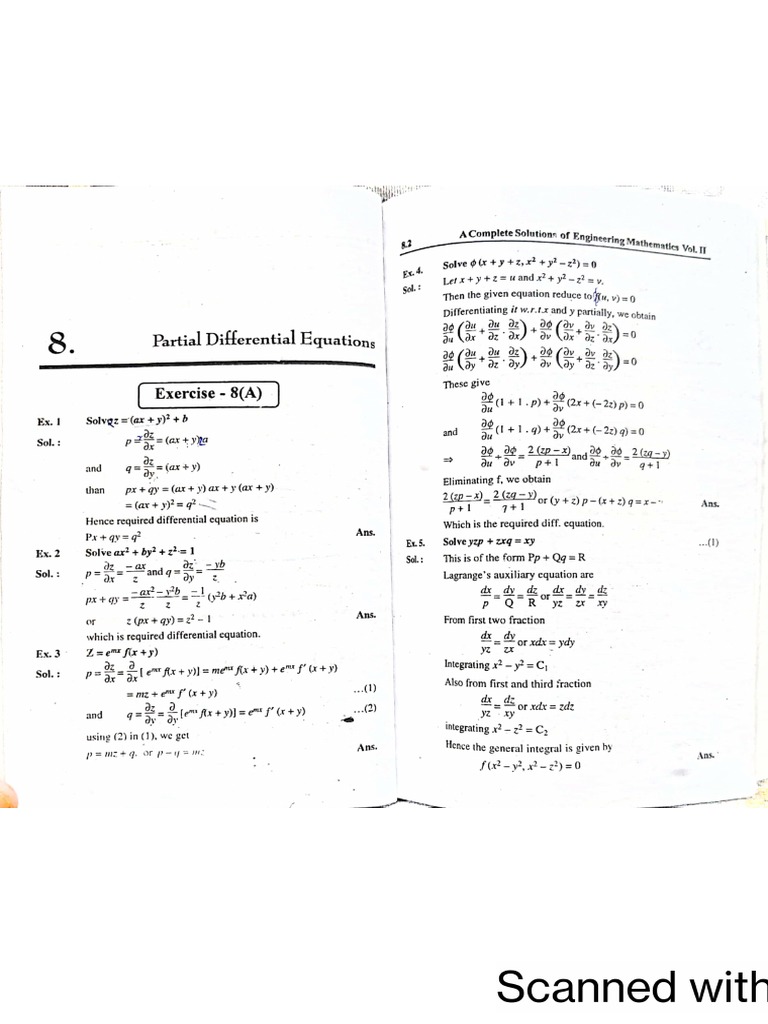 8.
Partial Differential Equations
Exercise - 8(A)
Ex. 1 Solve z = (ax + y)² + b
Sol. : p = ∂z/∂x = (ax + y)a
and q = ∂z/∂y = (ax + y)
than px + qy = (ax + y) ax + y (ax + y)
= (ax + y)² = q²
Hence required differential equation is
Px + qy = q² Ans.
Ex. 2 Solve ax² + by² + z² = 1
Sol. : p = ∂z/∂x = – ax/z and q = ∂z/∂y = – yb/z
px + qy = – ax²/z – y²b/z = –1/z (y²b + x²a)
or z (px + qy) = z² – 1 Ans.
which is required differential equation.
Ex. 3 Z = eᵐˣ f(x + y)
Sol. : p = ∂z/∂x = ∂/∂x [ eᵐˣ f(x + y)] = meᵐˣ f(x + y) + eᵐˣ f′ (x + y)
= mz + eᵐˣ f′ (x + y) ...(1)
and q = ∂z/∂y = ∂/∂y [eᵐˣ f(x + y)] = eᵐˣ f′ (x + y) ...(2)
using (2) in (1), we get
p = mz + q. or p – q = mz Ans.
8.2 A Complete Solutions of Engineering Mathematics Vol. II
Ex. 4. Solve ϕ (x + y + z, x² + y² – z²) = 0
Sol. : Let x + y + z = u and x² + y² – z² = v.
Then the given equation reduce to (u, v) = 0
Differentiating it w.r.t.x and y partially, we obtain
∂ϕ/∂u (∂u/∂x + ∂u/∂z · ∂z/∂x) + ∂ϕ/∂v (∂v/∂x + ∂v/∂z · ∂z/∂x) = 0
∂ϕ/∂u (∂u/∂y + ∂u/∂z · ∂z/∂y) + ∂ϕ/∂v (∂v/∂y + ∂v/∂z · ∂z/∂y) = 0
These give
∂ϕ/∂u (1 + 1 . p) + ∂ϕ/∂v (2x + (– 2z) p) = 0
and ∂ϕ/∂u (1 + 1 . q) + ∂ϕ/∂v (2x + (– 2z) q) = 0
⇒ ∂ϕ/∂u ÷ ∂ϕ/∂v = 2 (zp – x)/p + 1 and ∂ϕ/∂u ÷ ∂ϕ/∂v = 2 (zq – y)/q + 1
Eliminating f, we obtain
2 (zp – x)/p + 1 = 2 (zq – y)/q + 1 or (y + z) p – (x + z) q = x – Ans.
Which is the required diff. equation.
Ex. 5. Solve yzp + zxq = xy ...(1)
Sol : This is of the form Pp + Qq = R
Lagrange's auxiliary equation are
dx/p = dy/Q = dz/R or dx/yz = dy/zx = dz/xy
From first two fraction
dx/yz = dy/zx or xdx = ydy
Integrating x² – y² = C₁
Also from first and third fraction
dx/yz = dz/xy or xdx = zdz
integrating x² – z² = C₂
Hence the general integral is given by
f (x² – y², x² – z²) = 0 Ans.
Scanned with